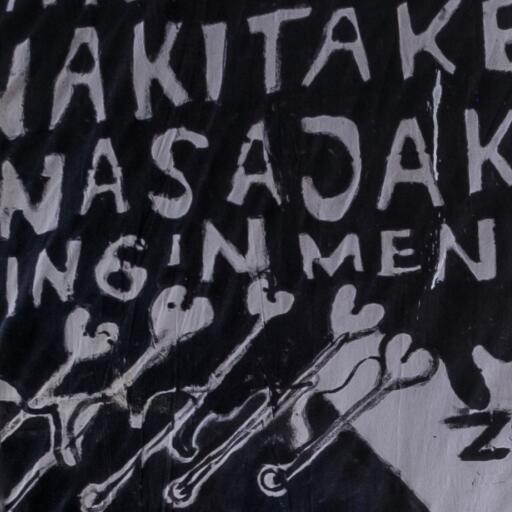 AKITAKE
NASAJAK
INGIN MEN
Z